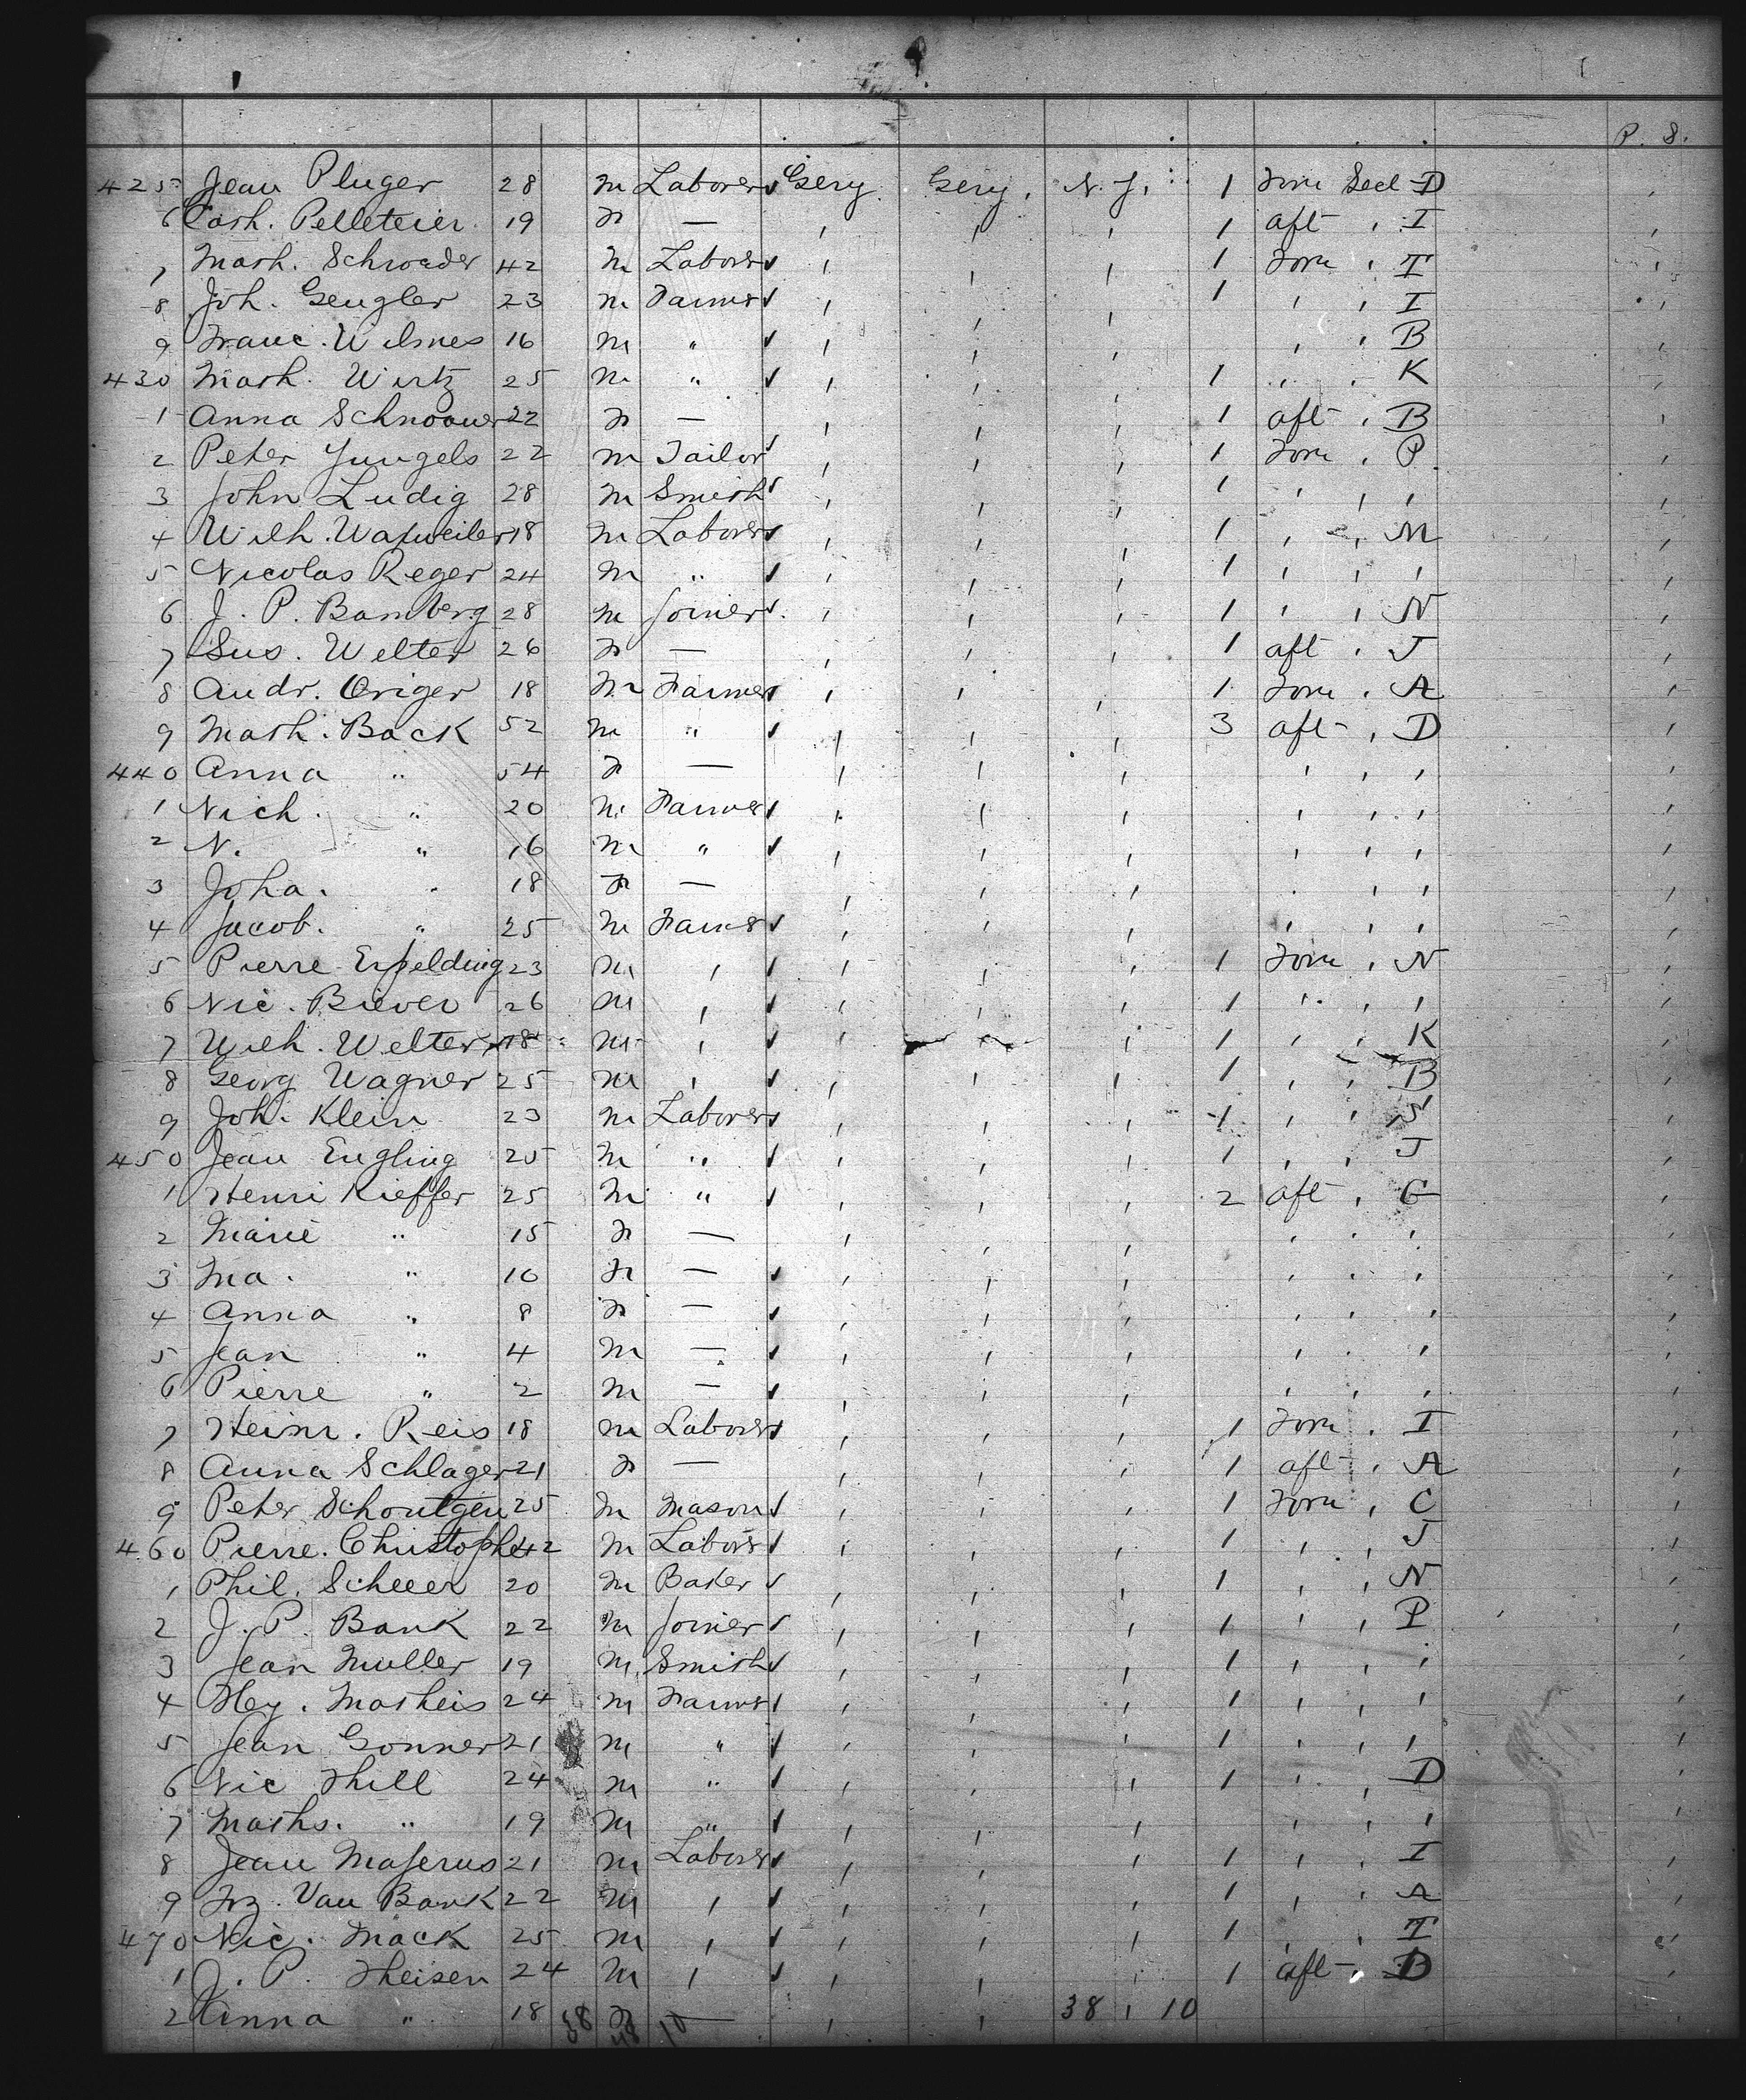 P. S.
425 Jean Pluger 28 m Laborer Gery. Gery, N. Y. 1 Forw Secl D
6 Cath. Pelleteier 19 f — , , , 1 aft , I
7 Math. Schroeder 42 m Laborer , , , 1 Forw , T
8 Joh. Gengler 23 m Farmer , , , 1 , , I
9 Franc. Wilmes 16 m " , , , , , B
430 Math. Wirtz 25 m " , , , 1 , , K
1 Anna 22 f — , , , 1 aft , B
2 Peter Jungels 22 m Tailor , , , 1 Forw , P
3 John Ludig 28 m Smith , , , 1 , , ,
4 Wilh. Watweiler 18 m Laborer , , , 1 , , M
5 Nicolas Reger 24 m " , , , 1 , , ,
6 J. P. Bamberg 28 m Joiner , , , 1 , , N
7 Sus. Welter 26 f — , , , 1 aft , J
8 Andr. Origer 18 m Farmer , , , 1 Forw , A
9 Math. Back 52 m " , , , 3 aft , D
440 Anna " 54 f — , , , , , ,
1 Nich. " 20 m Farmer , , , , , ,
2 N. " 16 m " , , , , , ,
3 Joha. " 18 f — , , , , , ,
4 Jacob. " 25 m Farmer , , , , , ,
5 Pierre Erpelding 23 m , , , , 1 Forw , N
6 Nic. Biever 26 m , , , , 1 , , ,
7 Wilh. Welter 18 m , , , , 1 , , K
8 Georg Wagner 25 m , , , , 1 , , B
9 Joh. Klein 23 m Laborer , , , 1 , , S
450 Jean Engling 25 m " , , , 1 , , J
1 Henri Kieffer 25 m " , , , 2 aft , G
2 Marie " 15 f — , , , , , ,
3 Ma. " 10 f — , , , , , ,
4 Anna " 8 f — , , , , , ,
5 Jean " 4 m — , , , , , ,
6 Pierre " 2 m — , , , , , ,
7 Heinr. Reis 18 m Laborer , , , 1 Forw , I
8 Anna Schlager 21 f — , , , 1 aft , A
9 Peter Schoutgen 25 m Mason , , , 1 Forw , C
460 Pierre. Christophe 42 m Laborer , , , 1 , , J
1 Phil. Scheer 20 m Baker , , , 1 , , N
2 J. P. Bank 22 m Joiner , , , 1 , , P
3 Jean Muller 19 m Smith , , , 1 , , ,
4 Hey. Matheis 24 m Farmer , , , 1 , , ,
5 Jean Gonner 21 m " , , , 1 , , ,
6 Nic Thill 24 m " , , , 1 , , D
7 Maths. " 19 m " , , , , , ,
8 Jean Maserus 21 m Laborer , , , 1 , , I
9 Frz. Van Bank 22 m , , , , 1 , , A
470 Nic. Mack 25 m , , , , 1 , , T
1 J. P. Theisen 24 m , , , , 1 aft , D
2 Anna " 18 f — , , 38 , 10
38 48 10